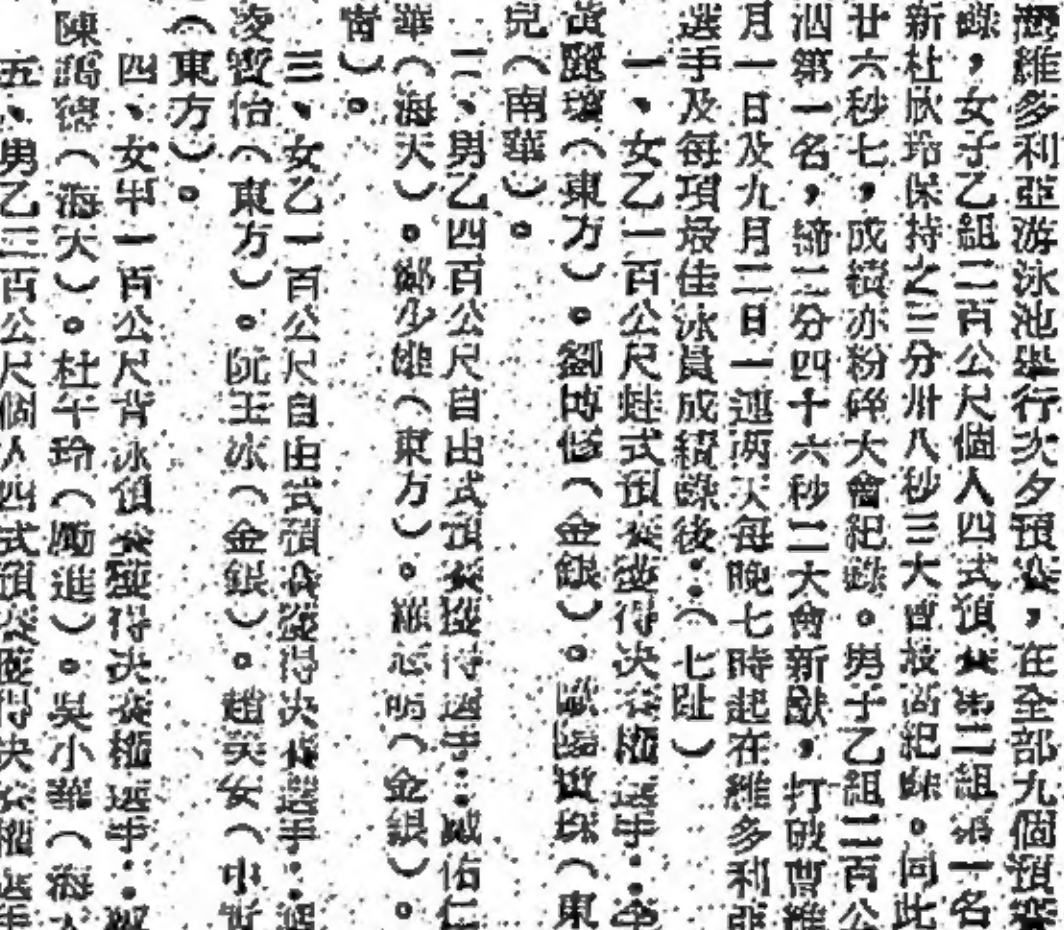 維多利亞游泳池舉行次夕預賽，在全部九個預賽
錄，女子乙組二百公尺個人四式預賽第二組第一名
新杜欣玲保持之三分卅八秒三大會最高紀錄。同此
廿六秒七，成績亦粉碎大會紀錄。男子乙組二百公
泗第一名，締二分四十六秒二大會新猷，打破曹維
月一日及九月二日一連兩天每晚七時起在維多利亞
選手及每項最佳泳員成績錄後：（七趾）
一、女乙一百公尺蛙式預賽獲得決賽權選手：
黃麗瓊（東方）。劉博修（金銀）。歐陽寶珠（東
兒（南華）。
二、男乙四百公尺自由式預賽獲得選手：戚佑仁
華（海天）。鄭少雄（東方）。羅志明（金銀）。
三、女乙一百公尺自由式預賽獲得決賽選手：
凌寶怡（東方）。阮玉冰（金銀）。趙笑女（中
（東方）。
四、女甲一百公尺背泳預賽獲得決賽權選手：
陳（海天）。杜午玲（勵進）。吳小華（海
五、男乙三百公尺個人四式預賽獲得決賽權選手